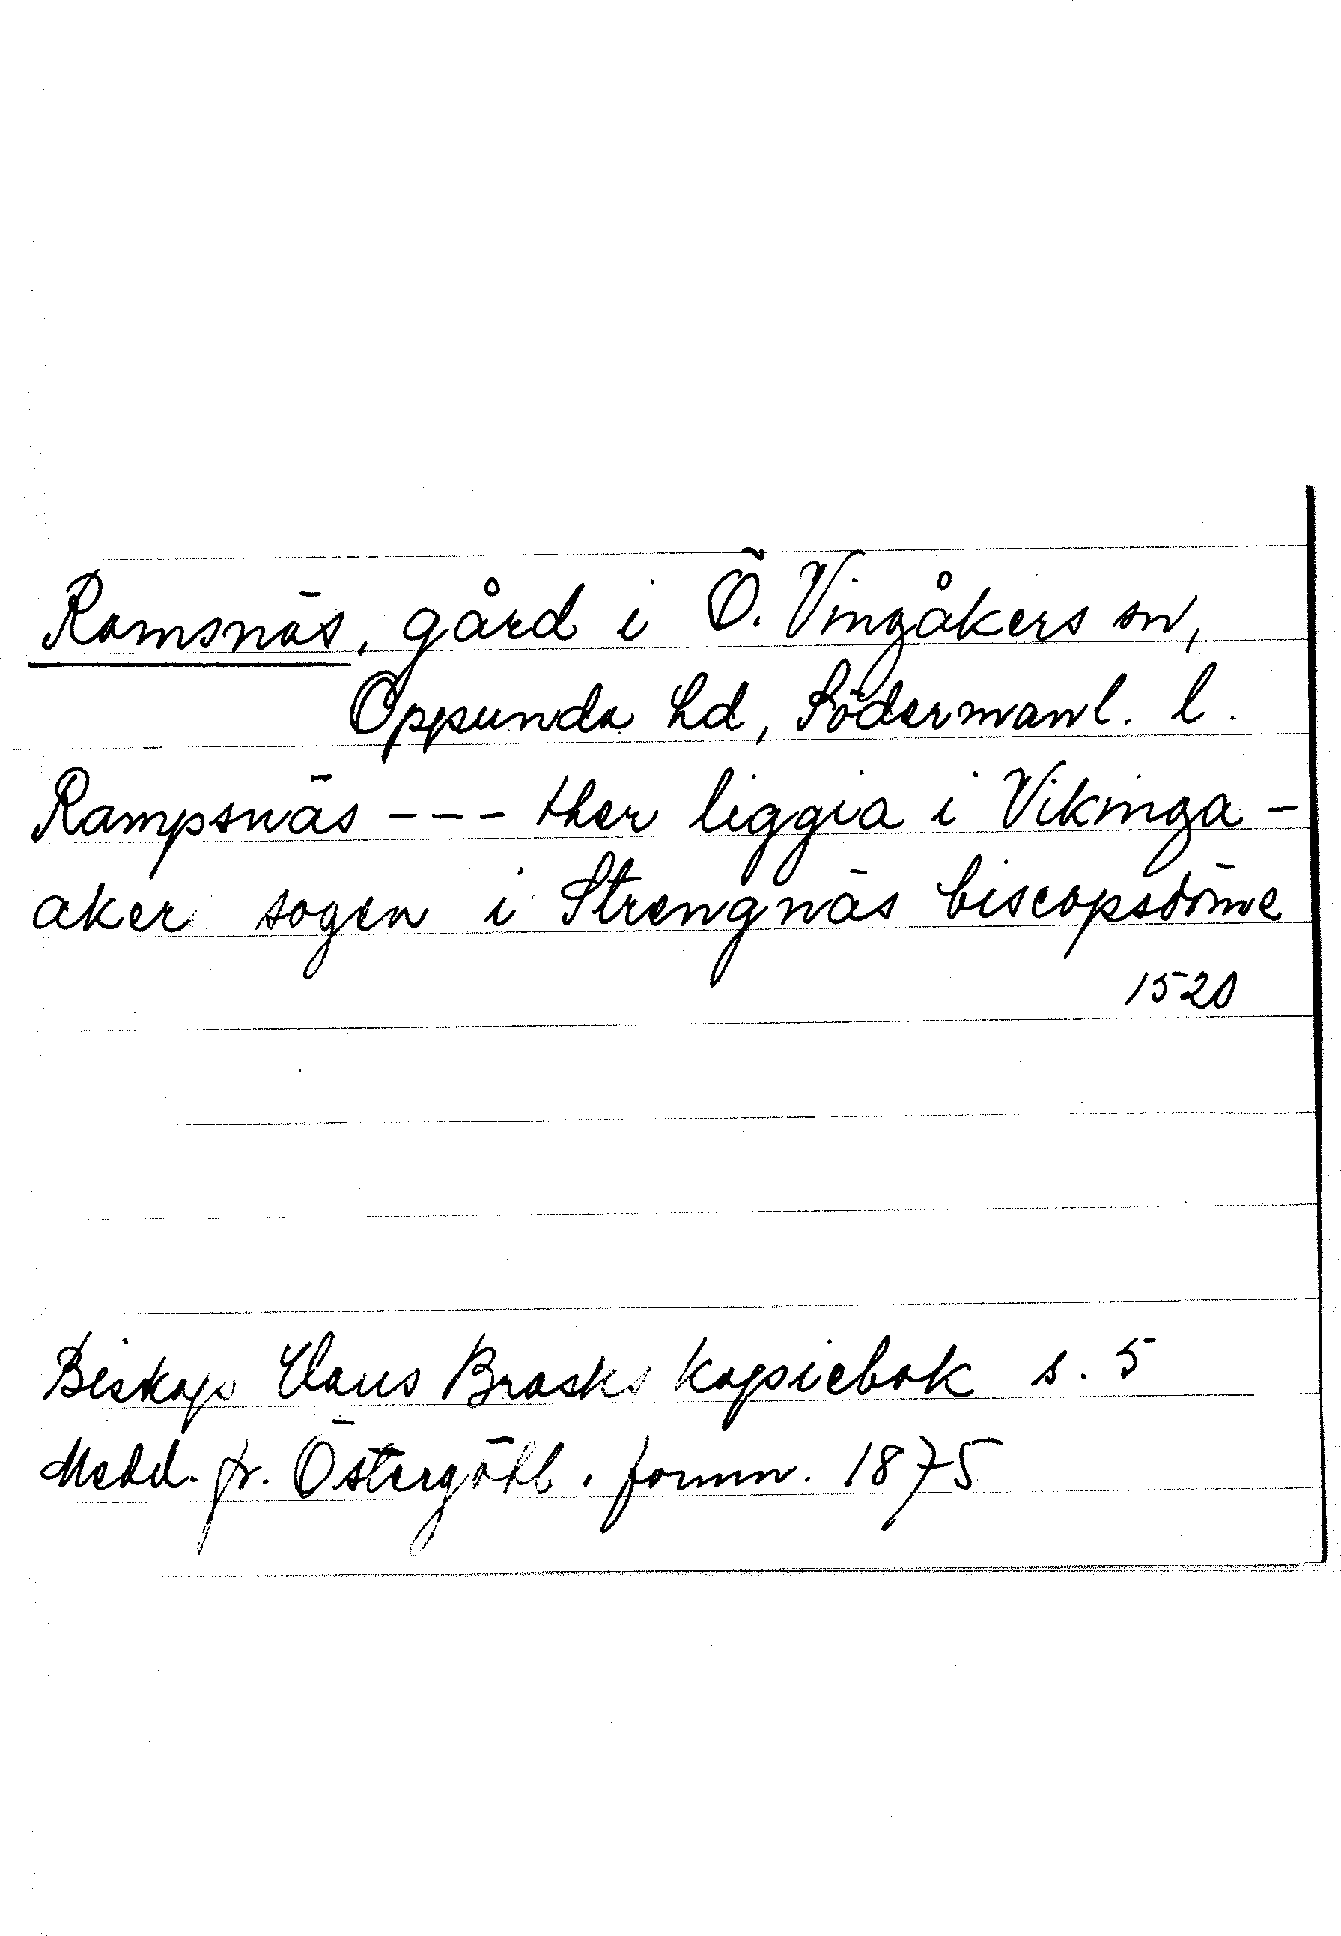 Ramsnäs, gård i Ö. Vingåkers sn,
Oppunda hd, Södermanl. l.
Rampsnäs --- ther liggia i Vikinga-
aker sogen i Strengnäs biscopsdöme
1520
Biskop Claus Brasks kopiebok s. 5
Medd. fr. Östergötl. fornm. 1875